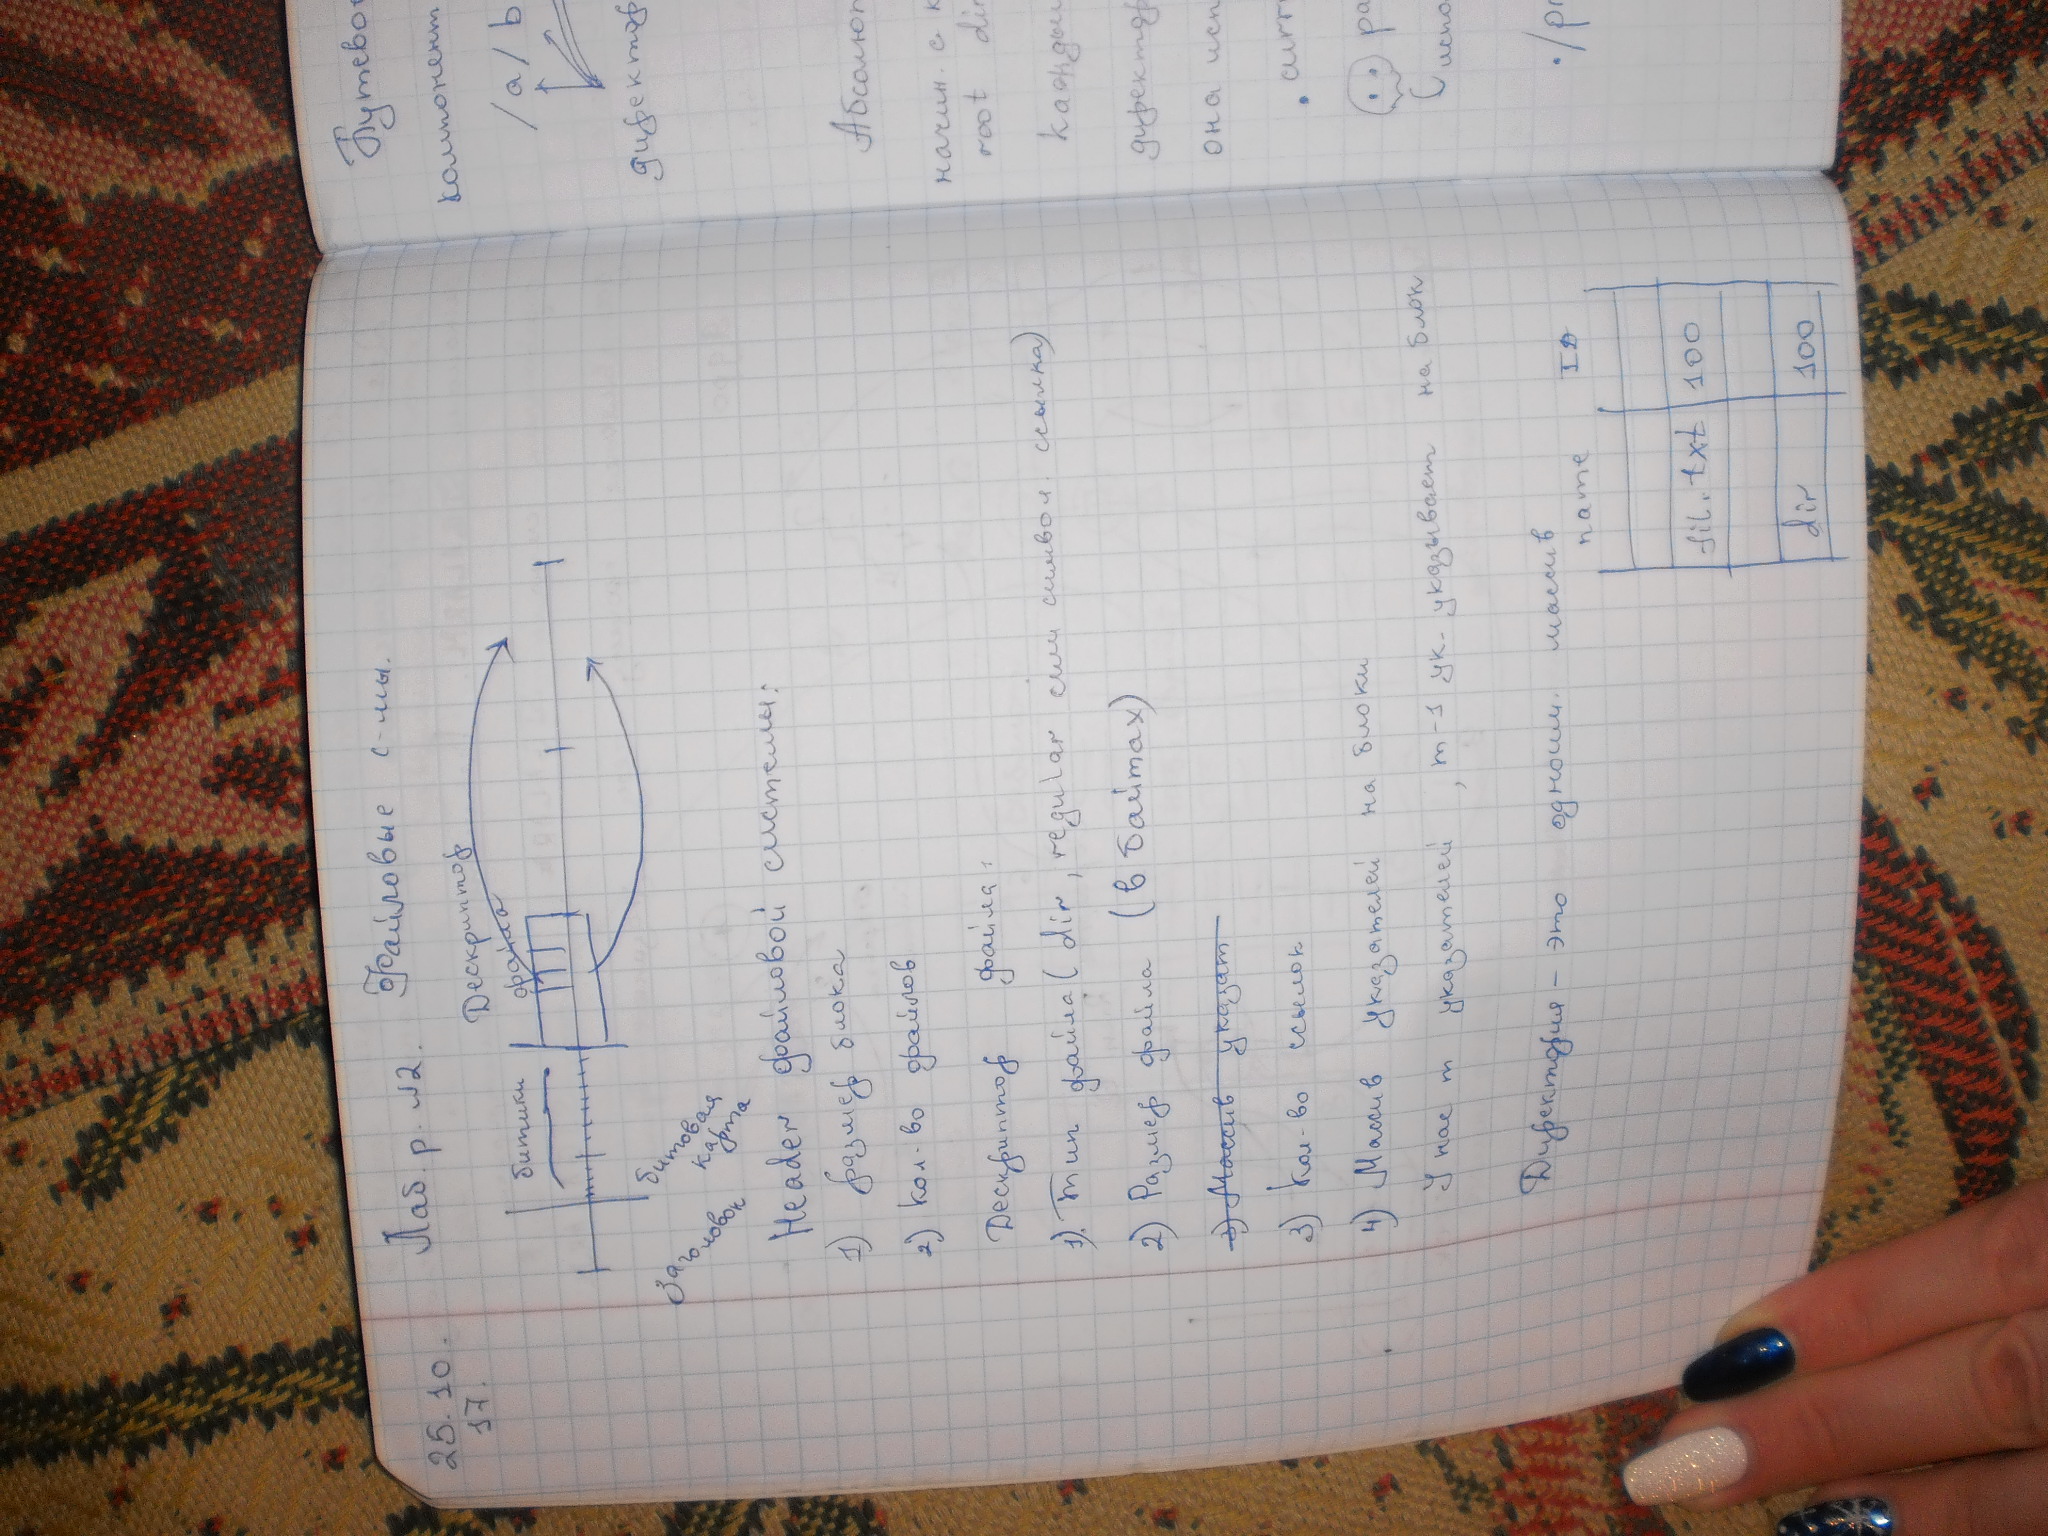 25.10.
17.
Лаб. р. №2. Файловые с-мы.
Дескриптор
файла
битики
Заголовок
битовая
карта
Header файловой системы:
1) размер блока
2) кол-во файлов
Дескриптор файла:
1). Тип файла (dir, regular или символ. ссылка)
2) Размер файла (в байтах)
3) Массив указат
3) Кол-во ссылок
4) Массив указателей на блоки
У нас m указателей, m-1 ук. указывает на блок
Директория - это одноим. массив
name ID
fil.txt 100
dir 100
Путевое
компонент
/a/b
директор
Абсолют
начин. с к
root dir
кажды
директор
она исп
(испо
./pr